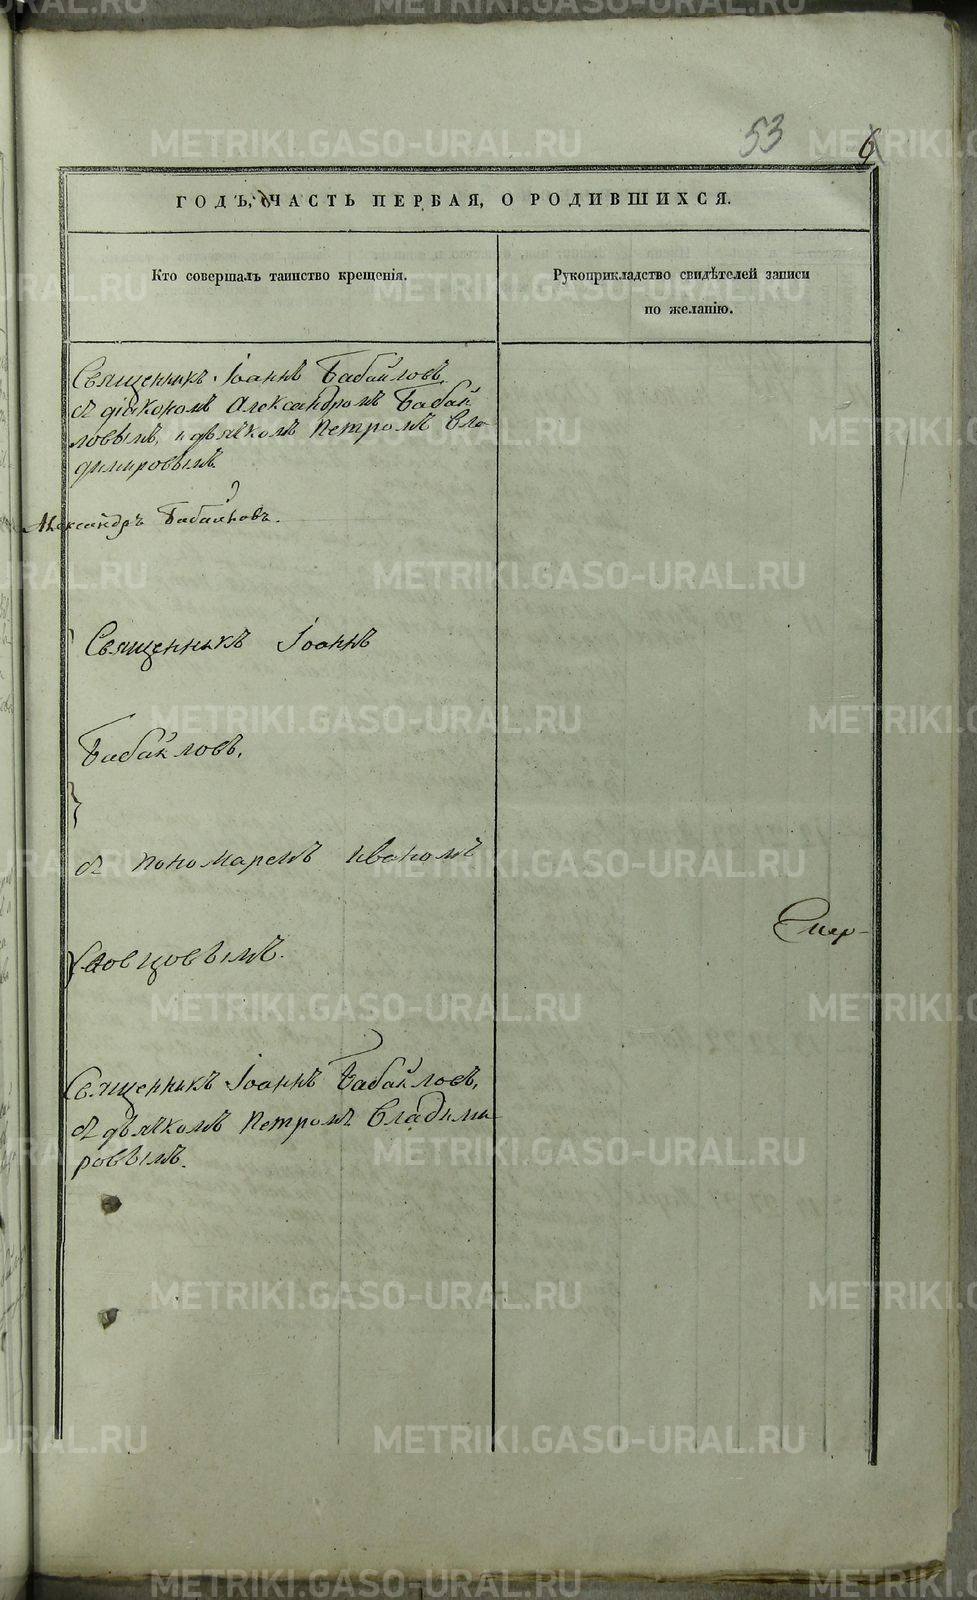 53
6
ГОДЪ, ЧАСТЬ ПЕРВАЯ, О РОДИВШИХСЯ.
Кто совершалъ таинство крещенія.
Рукоприкладство свидѣтелей записи
по желанію.
Священникъ Іоаннъ Бабайловъ,
съ діакономъ Александромъ Бабай
ловымъ, и дьячкомъ Петромъ Вла
димировымъ.
Александръ Бабайловъ.
Священникъ Іоаннъ
Бабайловъ,
съ пономаремъ Иваномъ
Словцовымъ.
Священникъ Іоаннъ Бабайловъ,
съ дьячкомъ Петромъ Владими
ровымъ.
METRIKI.GASO-URAL.RU